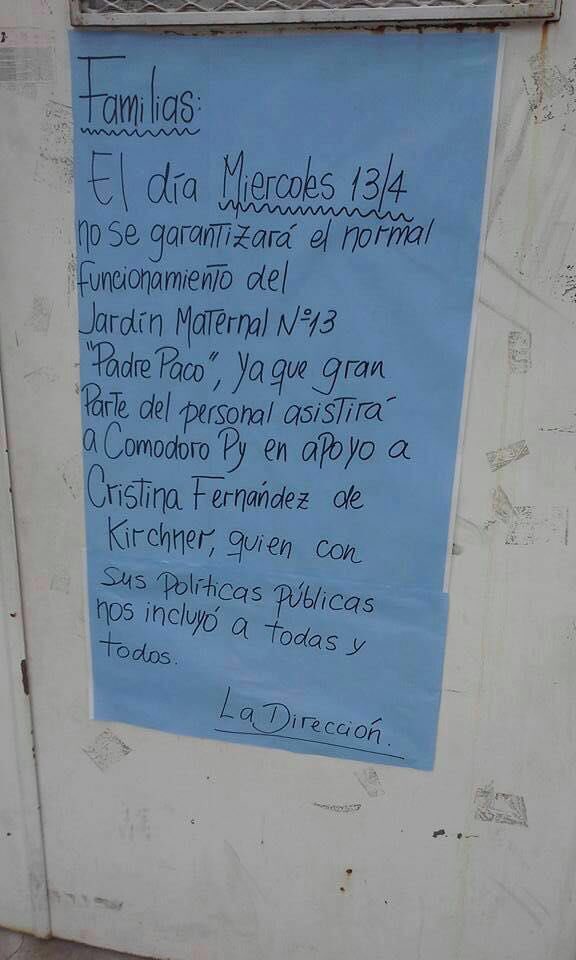 Familias:
El día Miercoles 13/4
no se garantizará el normal
funcionamiento del
Jardín Maternal Nº13
"Padre Paco", ya que gran
Parte del personal asistirá
a Comodoro Py en apoyo a
Cristina Fernández de
Kirchner, quien con
sus políticas públicas
nos incluyó a todas y
todos.
La Dirección.